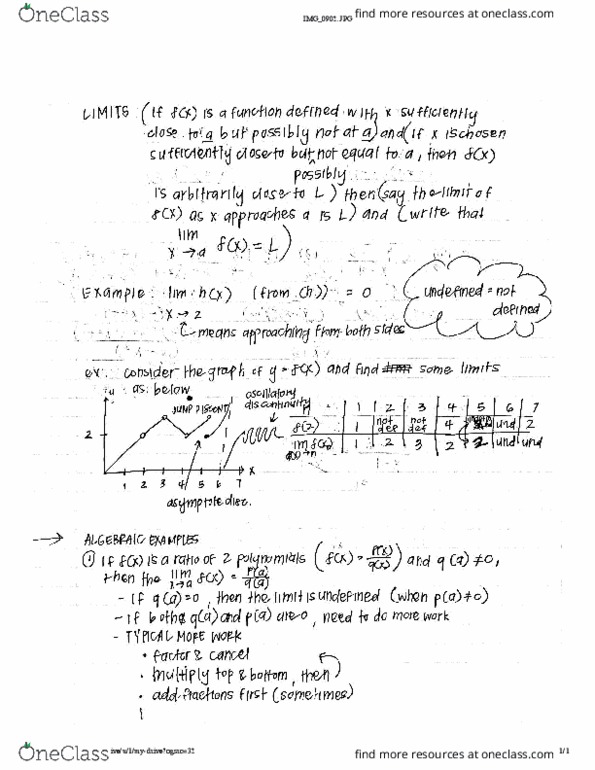 OneClass
IMG_0901.JPG
find more resources at oneclass.com
LIMITS: (If f(x) is a function defined with x sufficiently
close to a but possibly not at a) and (if x is chosen
sufficiently close to but not equal to a, then f(x)
possibly
is arbitrarily close to L) then (say the limit of
f(x) as x approaches a is L) and (write that
lim
x→a f(x) = L)
Example: lim h(x) (from (h)) = 0
x→2
undefined = not
defined
means approaching from both sides
ex. consider the graph of y = f(x) and find some limits
as below
JUMP DISCONT
oscillatory
discontinuity
2
1 2 3 4 5 6 7 x
asymptote disc.
1 2 3 4 5 6 7
1 not def not def 4 und 2
1 2 3 2 2 und und
→ ALGEBRAIC EXAMPLES
① If f(x) is a ratio of 2 polynomials (f(x) = p(x)/q(x)) and q(a) ≠ 0,
then the lim x→a f(x) = p(a)/q(a)
- If q(a) = 0, then the limit is undefined (when p(a) ≠ 0)
- if both q(a) and p(a) are 0, need to do more work
- TYPICAL MORE WORK
• factor & cancel
• multiply top & bottom, then
• add fractions first (sometimes)
OneClass
find more resources at oneclass.com
1/1